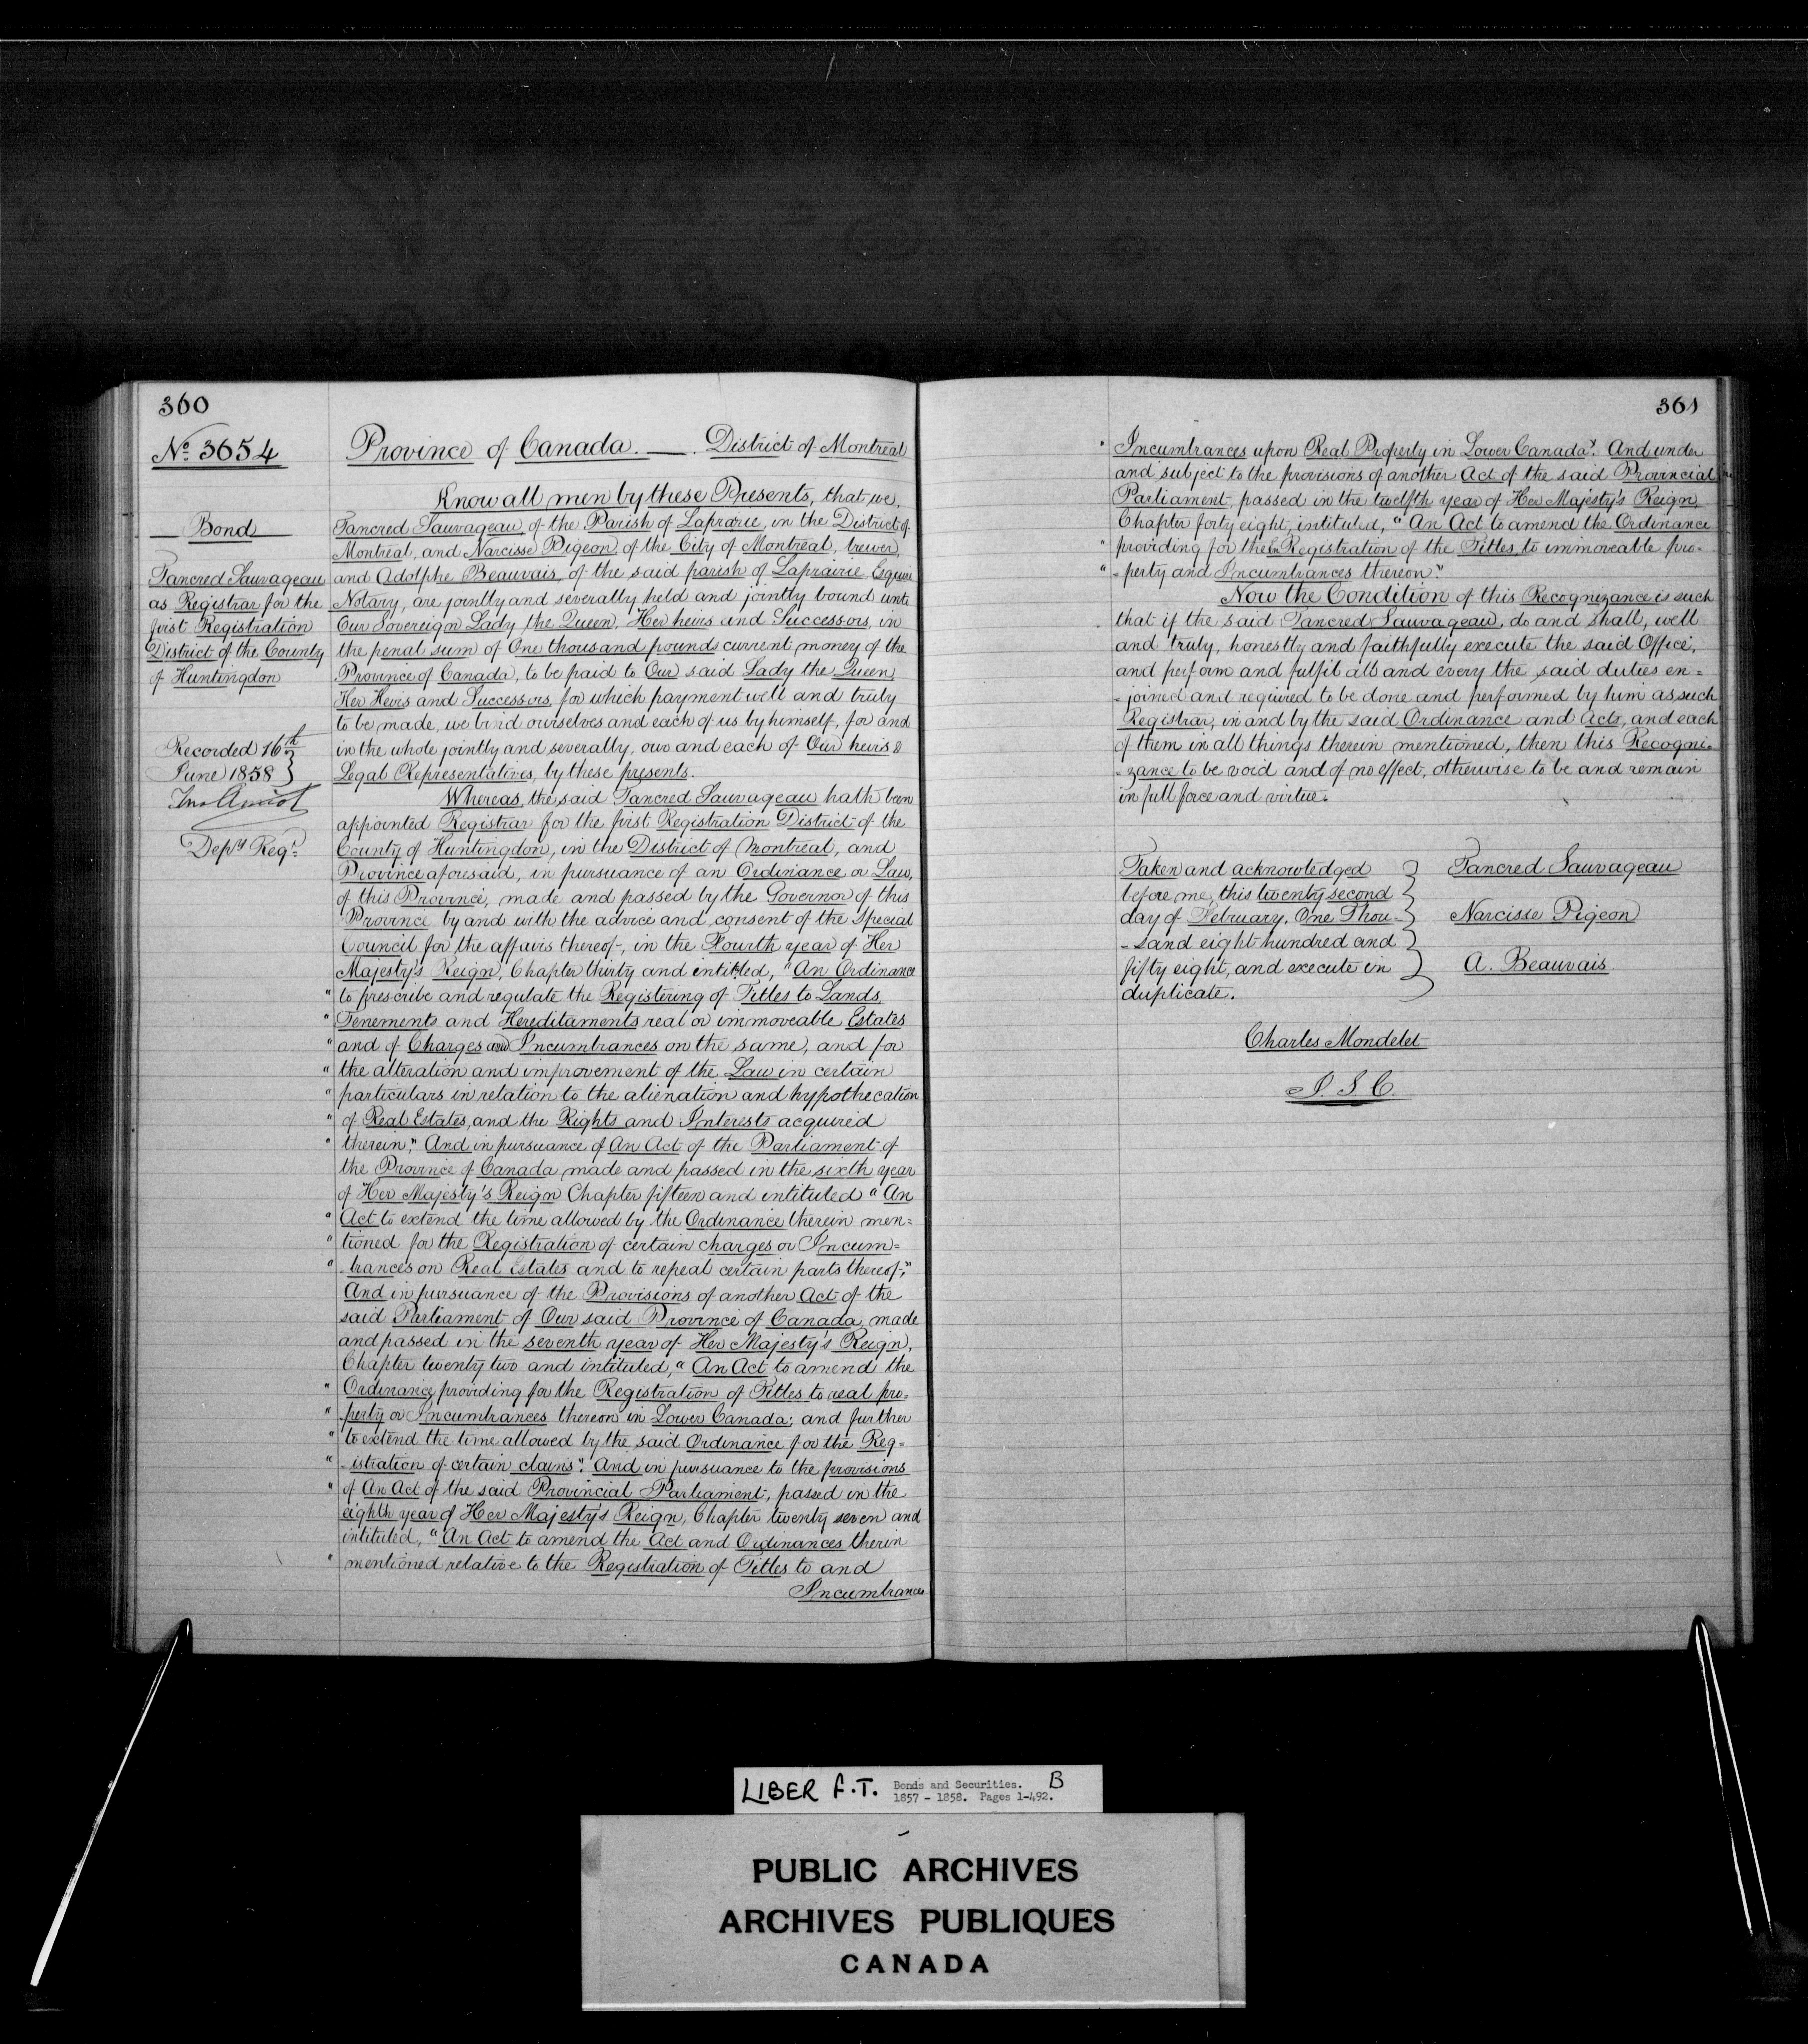 360
No. 3654
Bond
Tancred Sauvageau
as Registrar for the
first Registration
District of the County
of Huntingdon
Recorded 16th
June 1858
Jno Amiot
Depy Regr
Province of Canada. — . District of Montreal
Know all men by these Presents, that we,
Tancred Sauvageau, of the Parish of Laprarie, in the District of
Montreal, and Narcisse Pigeon, of the City of Montreal, brewer,
and Adolphe Beauvais, of the said parish of Laprairie Esquire
Notary, are jointly and severally held and jointly bound unto
Our Sovereign Lady the Queen, Her heirs and Successors, in
the penal sum of One thousand pounds current money of the
Province of Canada, to be paid to Our said Lady the Queen,
Her Heirs and Successors, for which payment well and truly
to be made, we bind ourselves and each of us by himself, for and
in the whole jointly and severally, our and each of Our heirs &
Legal Representatives, by these presents.
Whereas, the said Tancred Sauvageau hath been
appointed Registrar for the first Registration District of the
County of Huntingdon, in the District of Montreal, and
Province aforesaid, in pursuance of an Ordinance or Law,
of this Province, made and passed by the Governor of this
Province by and with the advice and consent of the Special
Council for the affairs thereof, in the Fourth year of Her
Majesty's Reign, Chapter thirty and intitled, "An Ordinance
" to prescribe and regulate the Registering of Titles to Lands,
" Tenements and Hereditaments real or immoveable Estates
" and of Charges and Incumbrances on the same, and for
" the alteration and improvement of the Law in certain
" particulars in relation to the alienation and hypothecation
" of Real Estates, and the Rights and Interests acquired
" therein," And in pursuance of An Act of the Parliament of
the Province of Canada made and passed in the sixth year
of Her Majesty's Reign Chapter fifteen and intituled "An
" Act to extend the time allowed by the Ordinance therein men=
" tioned for the Registration of certain charges or Incum=
" =brances on Real Estates and to repeal certain parts thereof,"
And in pursuance of the Provisions of another Act of the
said Parliament of Our said Province of Canada, made
and passed in the seventh year of Her Majesty's Reign,
Chapter twenty two and intituled, "An Act to amend the
" Ordinance providing for the Registration of Titles to real pro=
" perty or Incumbrances thereon in Lower Canada; and further
" to extend the time allowed by the said Ordinance for the Reg=
" =istration of certain claims". And in pursuance to the provisions
" of An Act of the said Provincial Parliament, passed in the
eighth year of Her Majesty's Reign, Chapter twenty seven and
intituled, "An Act to amend the Act and Ordinances therein
" mentioned relative to the Registration of Titles to and
Incumbrances
361
" Incumbrances upon Real Property in Lower Canada". And under
and subject to the provisions of another Act of the said Provincial
Parliament, passed in the twelfth year of Her Majesty's Reign,
Chapter forty eight, intituled, "An Act to amend the Ordinance
" providing for the Registration of the Titles to immoveable pro=
" =perty and Incumbrances thereon."
Now the Condition of this Recognizance is such
that if the said Tancred Sauvageau, do and shall, well
and truly, honestly and faithfully execute the said Office,
and perform and fulfil all and every the said duties en=
=joined and required to be done and performed by him as such
Registrar, in and by the said Ordinance and Acts, and each
of them in all things therein mentioned, then this Recogni=
=zance to be void and of no effect, otherwise to be and remain
in full force and virtue.
Taken and acknowledged
before me, this twenty second
day of February, One Thou=
=sand eight hundred and
fifty eight, and execute in
duplicate.
Tancred Sauvageau
Narcisse Pigeon
A. Beauvais
Charles Mondelet
J. S. C.
LIBER F.T. Bonds and Securities. B
1857 - 1858. Pages 1-492.
PUBLIC ARCHIVES
ARCHIVES PUBLIQUES
CANADA